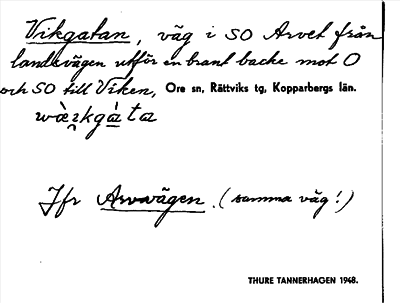 Vikgatan, väg i SO Arvet från
landsvägen utför en brant backe mot O
och SO till Viken, Ore sn, Rättviks tg, Kopparbergs län.
Jfr Arvavägen. (samma väg!)
THURE TANNERHAGEN 1948.